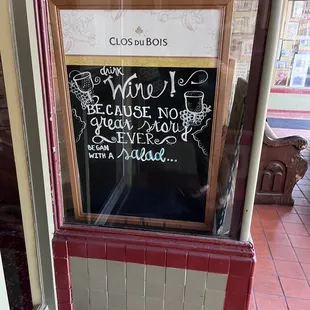 CLOS DU BOIS
drink
Wine!
BECAUSE NO
great story
EVER
BEGAN
WITH A salad...